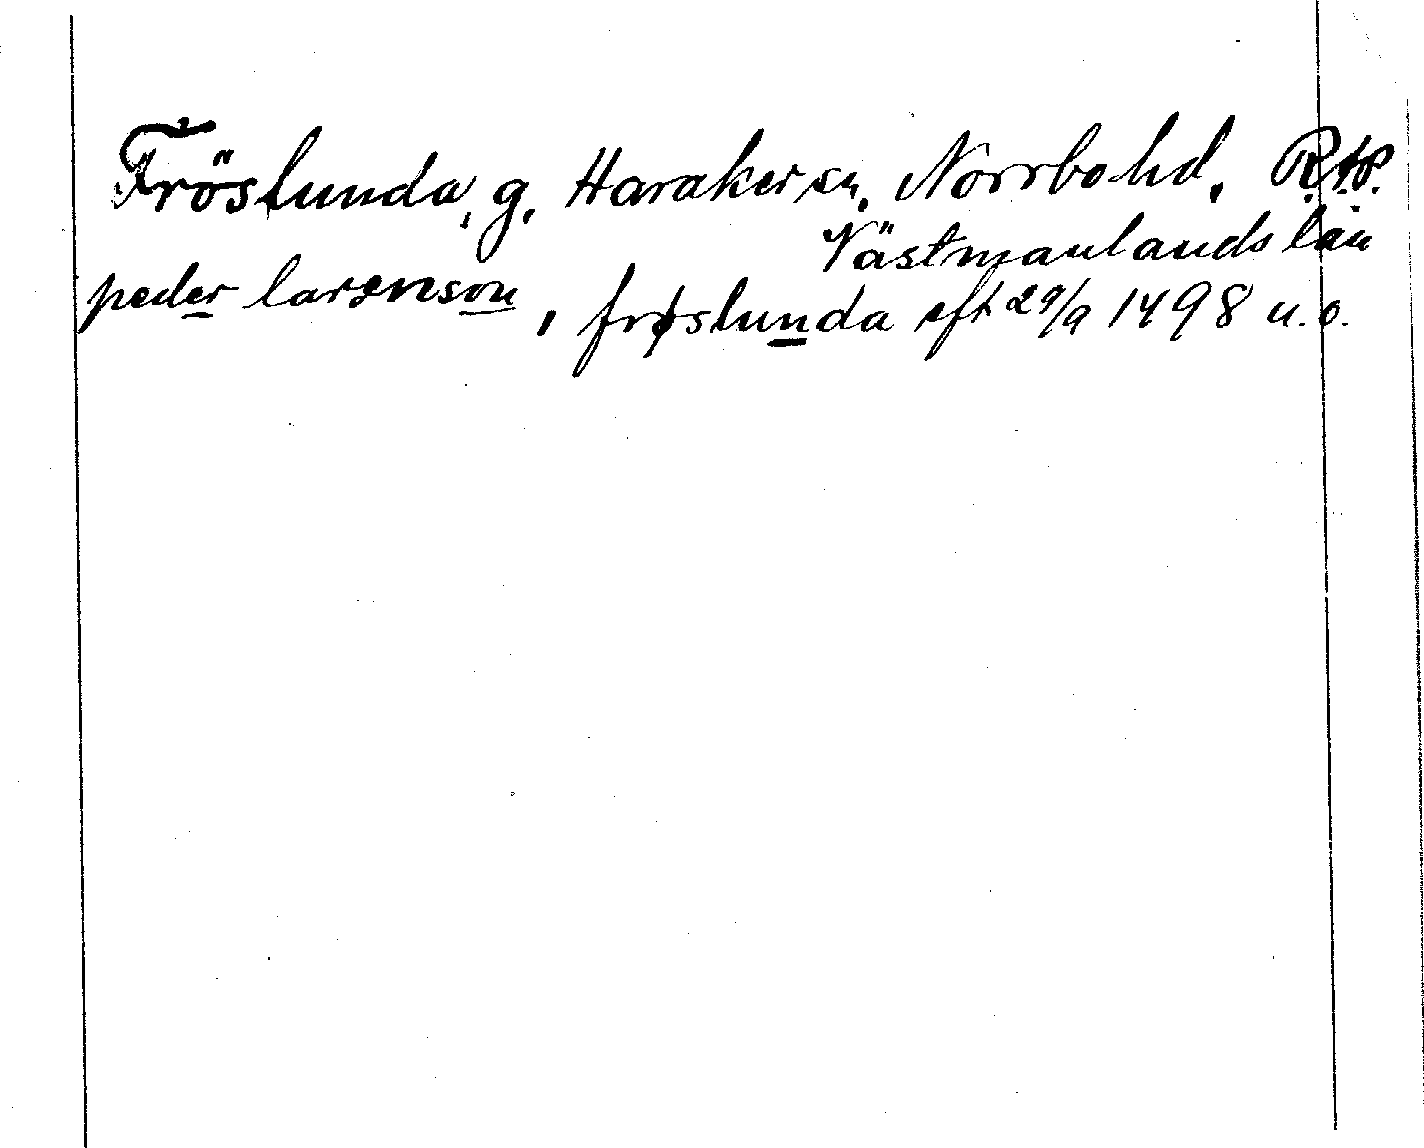 Fröslunda, g. Haraker sn, Norrbo hd. R.ap.
Västmanlands län
peder larenson, frøslunda eft 29/9 1498 u.o.